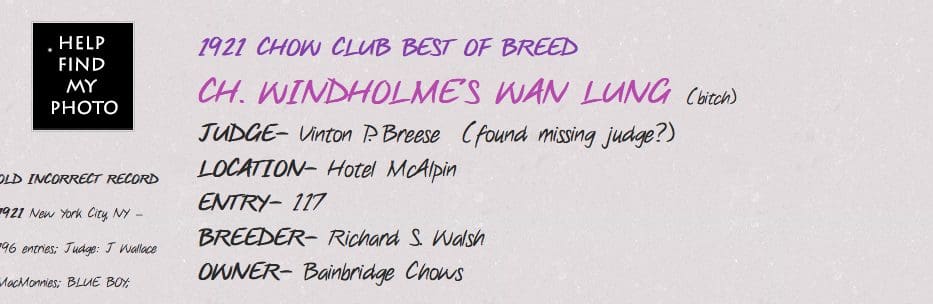 HELP
FIND
MY
PHOTO
OLD INCORRECT RECORD
1921 New York City, NY –
196 entries; Judge: J Wallace
MacMonnies; BLUE BOY;
1921 CHOW CLUB BEST OF BREED
CH. WINDHOLME'S WAN LUNG (bitch)
JUDGE– Vinton P. Breese (found missing judge?)
LOCATION– Hotel McAlpin
ENTRY– 117
BREEDER– Richard S. Walsh
OWNER– Bainbridge Chows